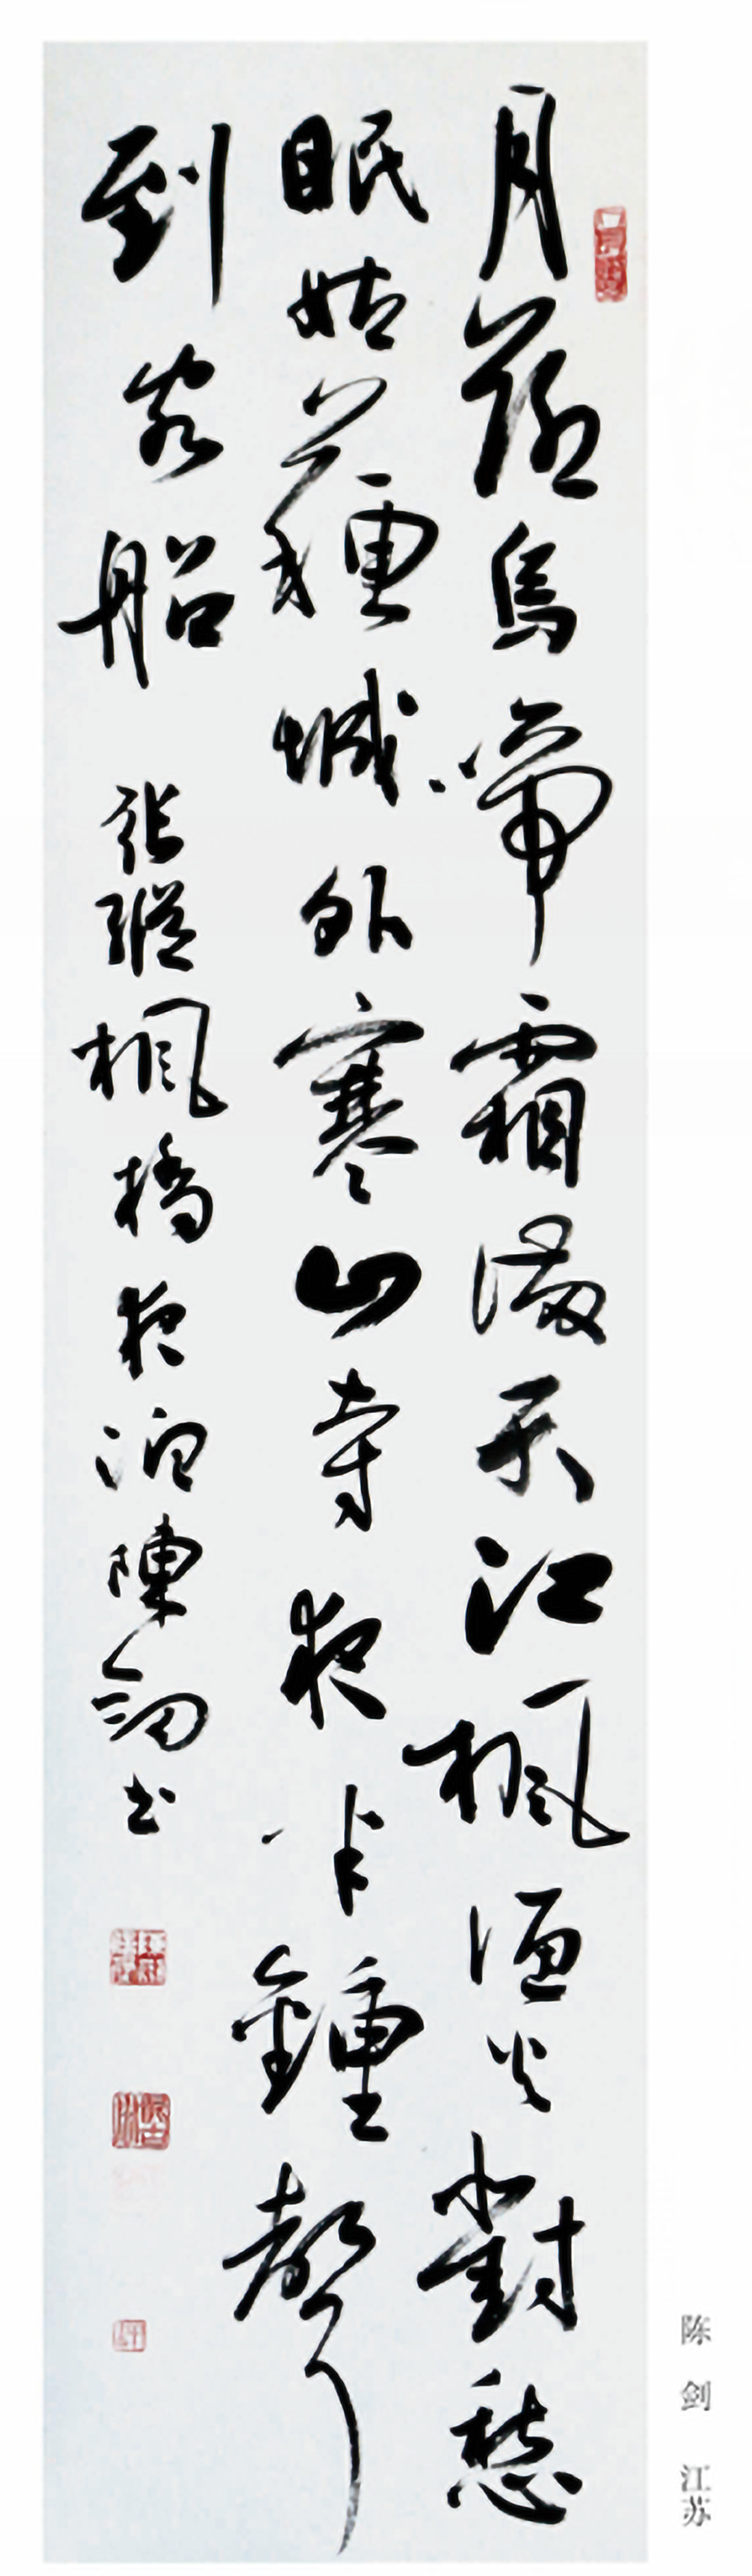 月落烏啼霜滿天江楓漁火對愁
眠姑蘇城外寒山寺夜半鍾聲
到客船 張繼楓橋夜泊陳劍书
陈剑 江苏